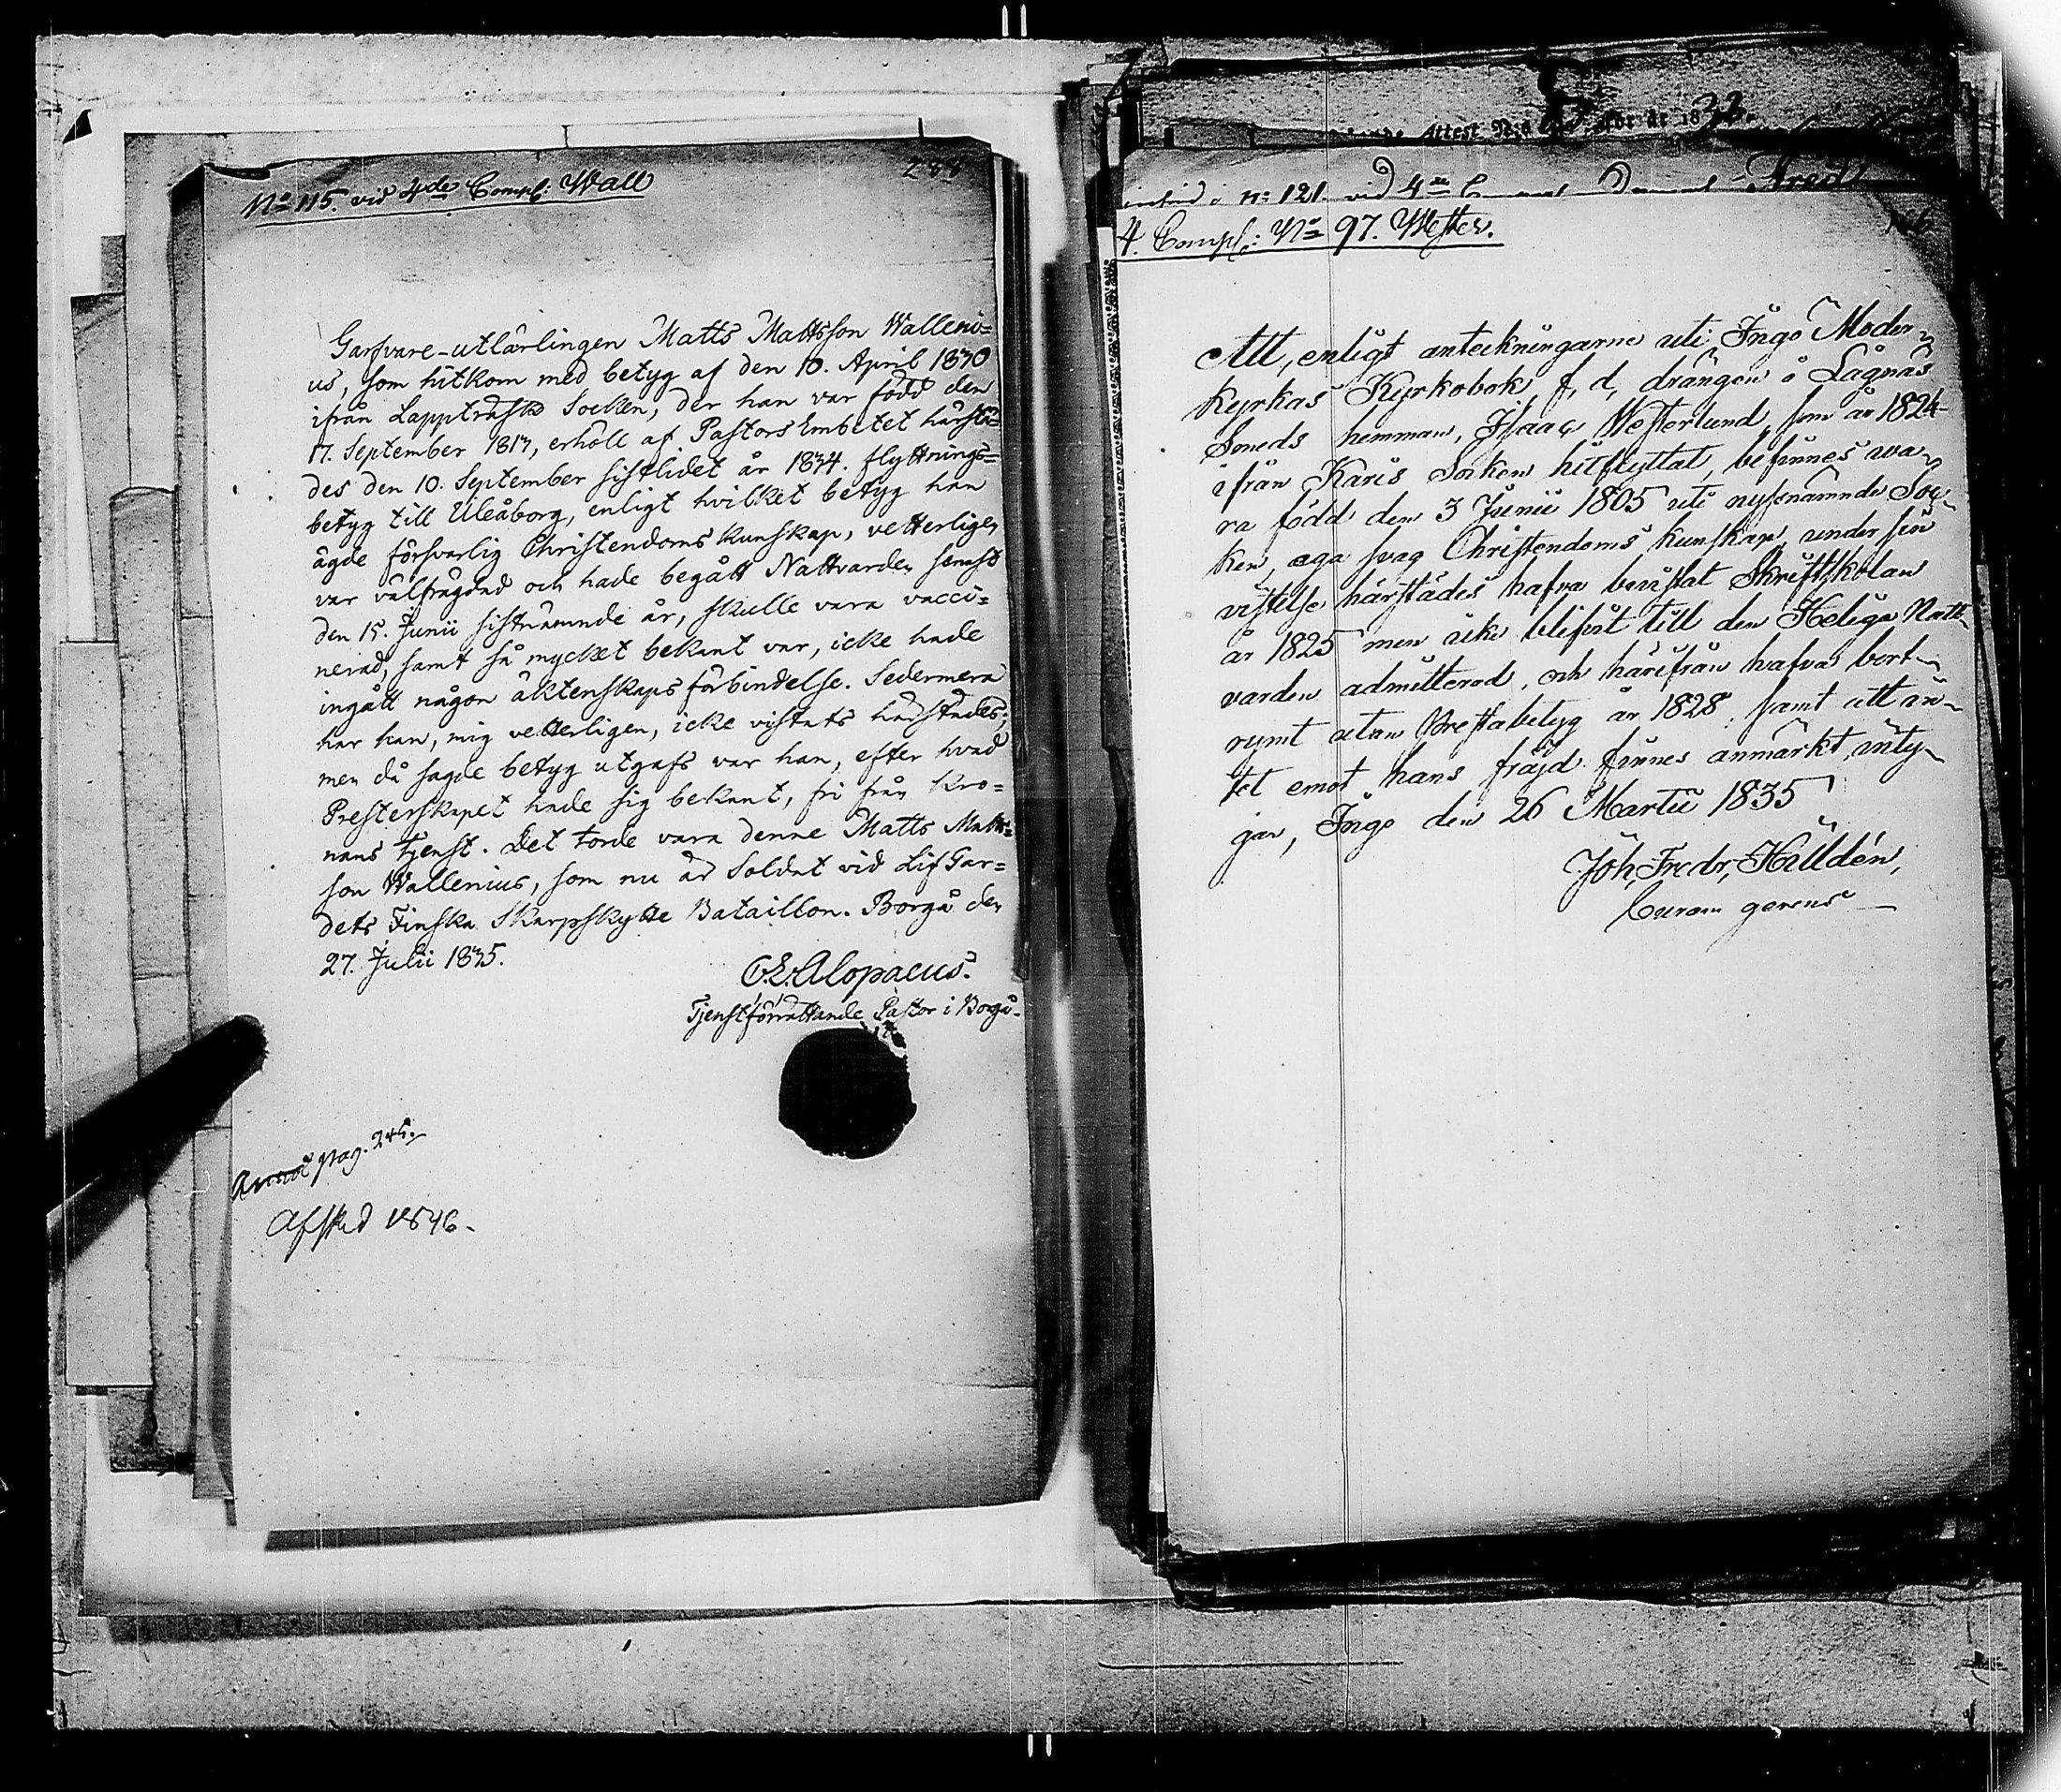 288
No 115. vid 4de Comp: Wall
Garfvare-utlärlingen Matts Mattsson Walleni=
us, som hitkom med betyg af den 10. April 1830
ifrån Lappträsk Socken, der han var född den
17. September 1813, erhöll af Pastors Embetet härstä=
des den 10. September sistlidet år 1834. flyttnings=
betyg till Uleåborg, enligt hvilket betyg han
ägde försvarlig Christendoms kunskap, vetterligen
var välfrägdad och hade begått Nattvarden senast
den 15. Junii sistnämnde år, skulle vara vacci=
nerad, samt så mycket bekant var, icke hade
ingått någon äktenskaps förbindelse. Sedermera
har han, mig vetterligen, icke vistats härstädes;
men då sagde betyg utgafs var han, efter hvad
Presterskapet hade sig bekant, fri från Kro=
nans tjenst. Det torde vara denne Matts Matts=
son Wallenius, som nu är Soldat vid Lif Gar=
dets Finska Skarpskytte Bataillon. Borgå den
27. Julii 1835.
C. E. Alopaeus.
Tjenstförrättande Pastor i Borgå.
pag. 245.
Afsked 1846.
Attest No för år 1833.
n: 121. vid 4de
4. Comp: No 97. Wester.
Att, enligt anteckningarne uti Ingo Moder-
kyrkas Kyrkobok f, d, drängen å Lågnäs
Smeds hemman, Isaac Westerlund som år 1824
ifrån Karis Socken hitflyttat, befinnes wa-
ra född den 3 Junii 1805 uti nyssnämnde Soc-
ken, äga svag Christendoms kunskap, under sin
vistelse härstädes hafva bevistat Skriftskolan
år 1825 men icke blifvit till den Heliga Natt-
varden admitterad, och härifrån hafva bort-
rymt utan Prestabetyg år 1828, samt att an-
tet emot hans fräjd finnes anmärkt, inty-
gar, Ingo den 26 Martii 1835
Joh, Fredr, Hülldén,
Curam gerens